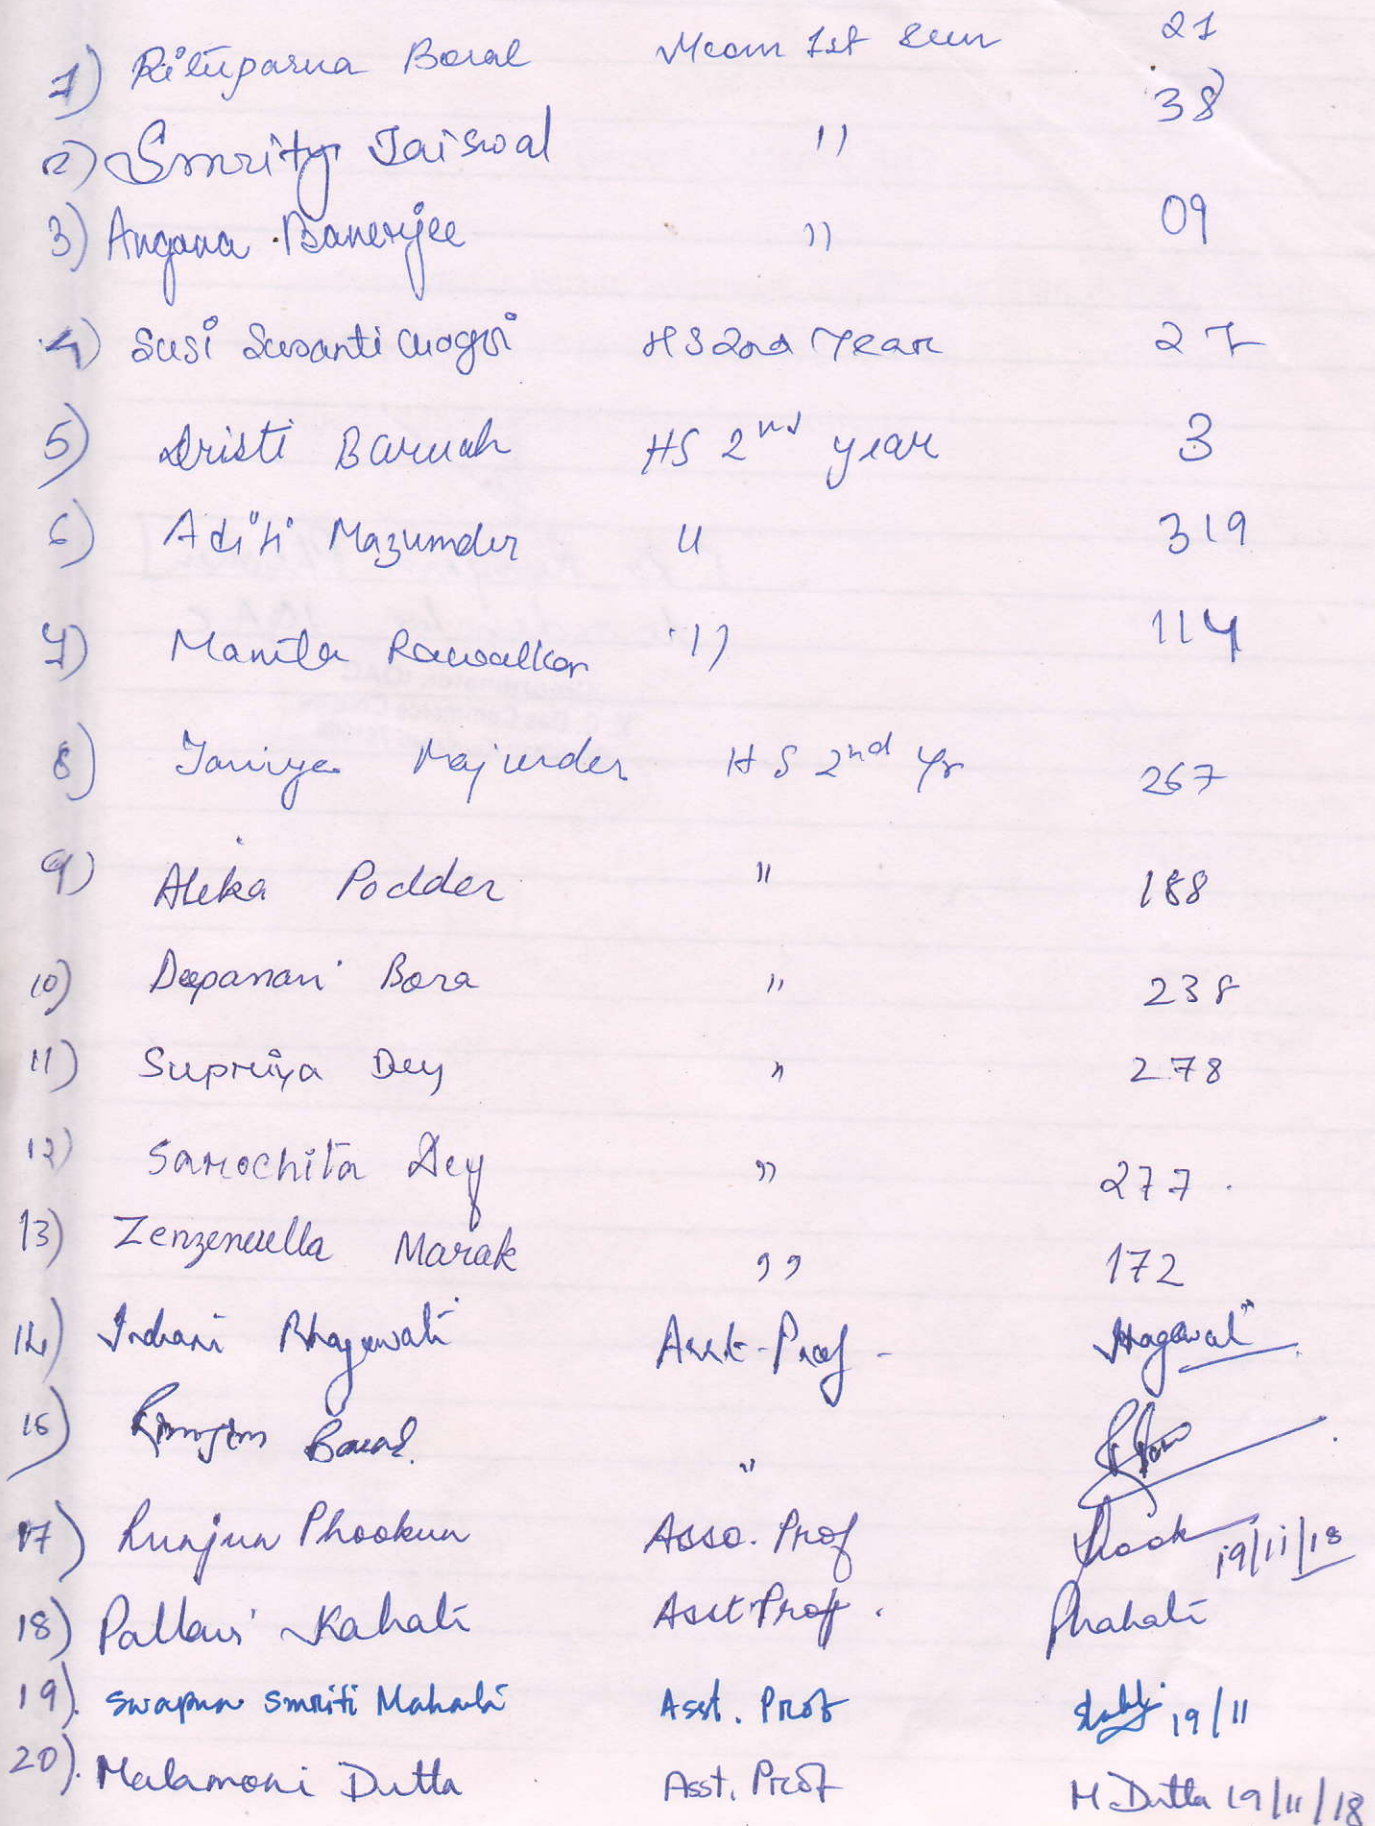 1) Rituparna Boral Mcom 1st sem 21
2) Smrity Jaiswal 11 38
3) Angana Banerjee 11 09
4) Susi Susanti HS 2nd Year 27
5) Dristi Baruah HS 2nd year 3
6) Aditi Mazumder 11 319
7) Manila Rawalkar 11 114
8) Taniya Majumder HS 2nd Yr 267
9) Alika Podder " 188
10) Deepamani Bora " 238
11) Supriya Dey " 278
12) Sarochita Dey " 277
13) Zenzenuella Marak " 172
14) Indrani Bhagawati Asst. Prof - Bhagawati
16) Rimjim Borah "
17) Runjun Phookun Asso. Prof Phook 19/11/18
18) Pallavi Kahati Asst Prof. Pkahati
19) Swapna Smriti Mahanta Asst. Prof 19/11
20) Malamoni Dutta Asst. Prof M. Dutta 19/11/18